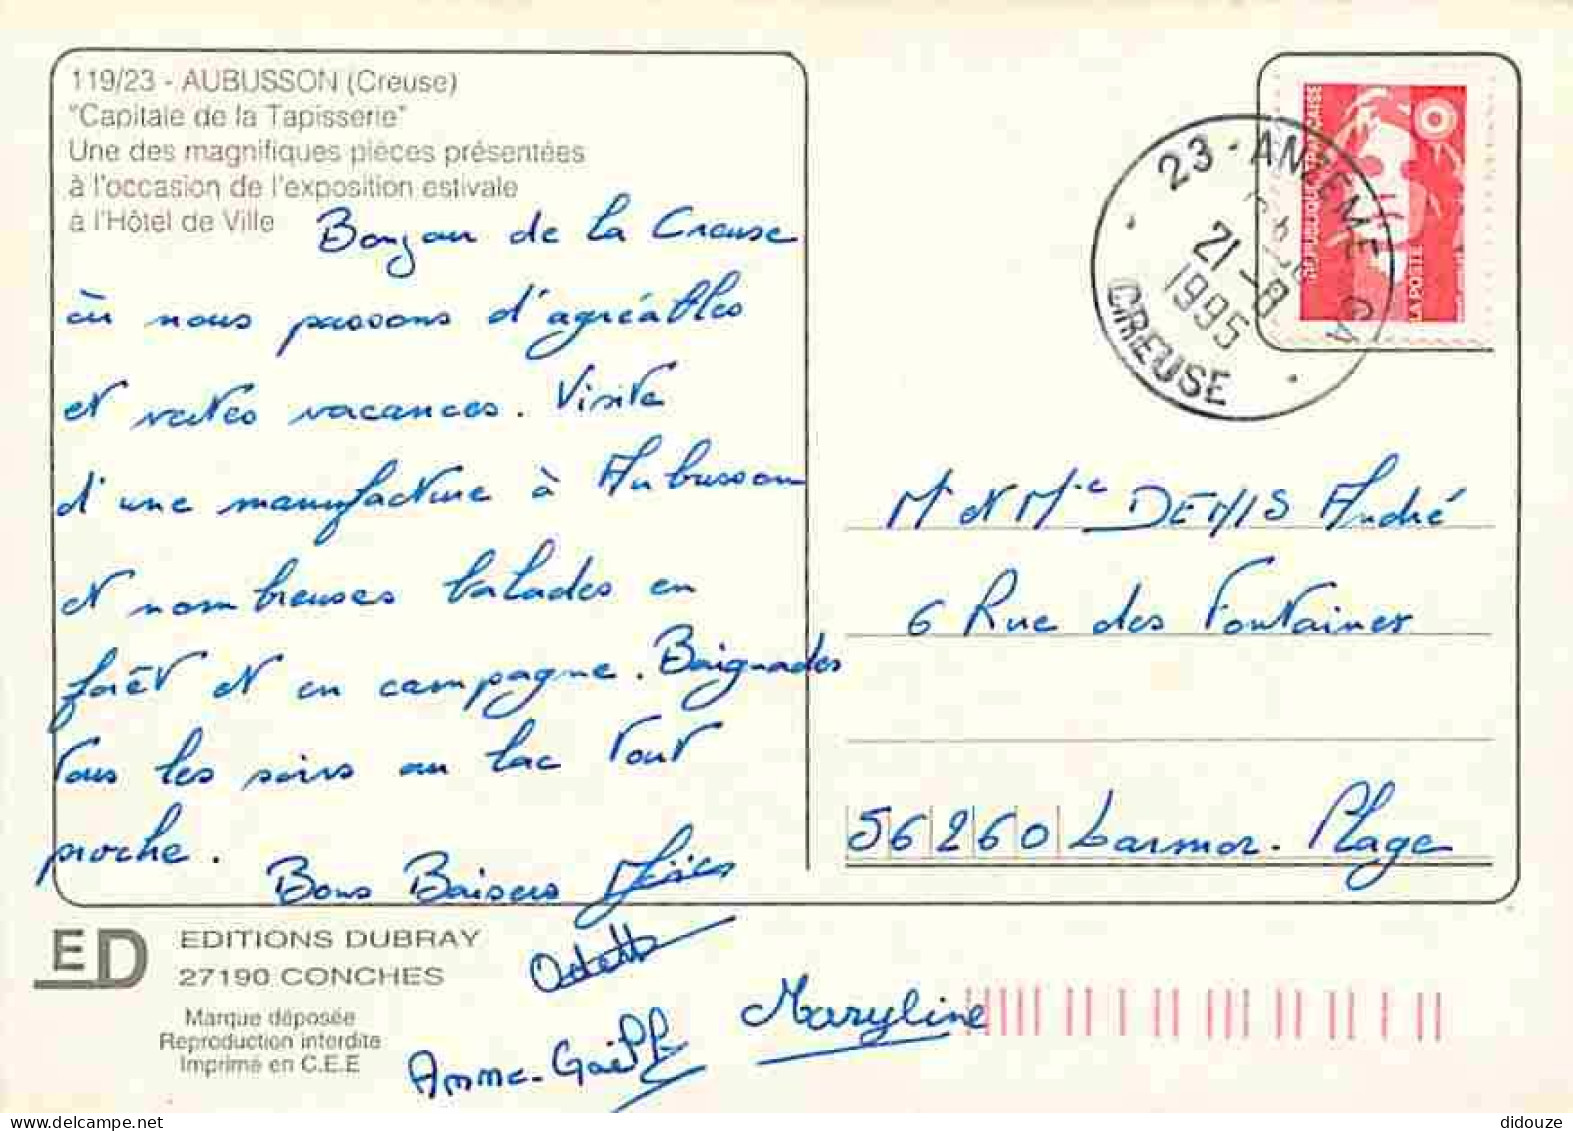 119/23 - AUBUSSON (Creuse)
"Capitale de la Tapisserie"
Une des magnifiques pièces présentées
à l'occasion de l'exposition estivale
à l'Hôtel de Ville
Bonjour de la Creuse
où nous passons d'agréables
et vertes vacances. Visite
d'une manufacture à Aubusson
et nombreuses balades en
forêt et en campagne. Baignades
tous les soirs au lac tout
proche.
Bons Baisers
Odette
Maryline
Anne-Gaëlle
23 - ANZEME
21-8
1995
CREUSE
REPUBLIQUE FRANÇAISE
LA POSTE
Mr et Mme DENIS André
6 Rue des Fontaines
56260 Larmor-Plage
ED
EDITIONS DUBRAY
27190 CONCHES
Marque déposée
Reproduction interdite
Imprimé en C.E.E
didouze